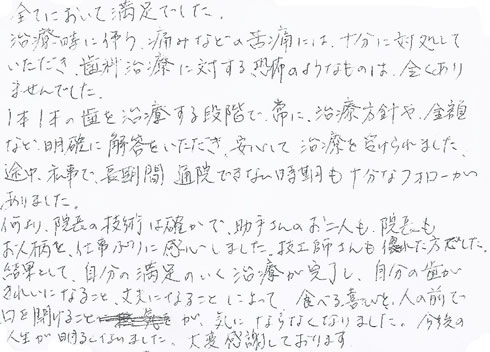 全てにおいて満足でした。
治療時に伴う、痛みなどの苦痛には、十分に対処して
いただき、歯科治療に対する恐怖のようなものは、全くあり
ませんでした。
1本1本の歯を治療する段階で、常に、治療方針や、金額
など、明確に解答をいただき、安心して治療を受けられました。
途中、私事で、長期間通院できない時期も十分なフォローが
ありました。
何より、院長の技術は確かで、助手さんのお二人も、院長も
お人柄と、仕事ぶりに感心しました。技工師さんも優れた方でした。
結果として、自分の満足のいく治療が完了し、自分の歯が
きれいになること、丈夫になることによって、食べる喜びと、人の前で
口を開けることが、気にならなくなりました。今後の
人生が明るくなりました。大変感謝しております。